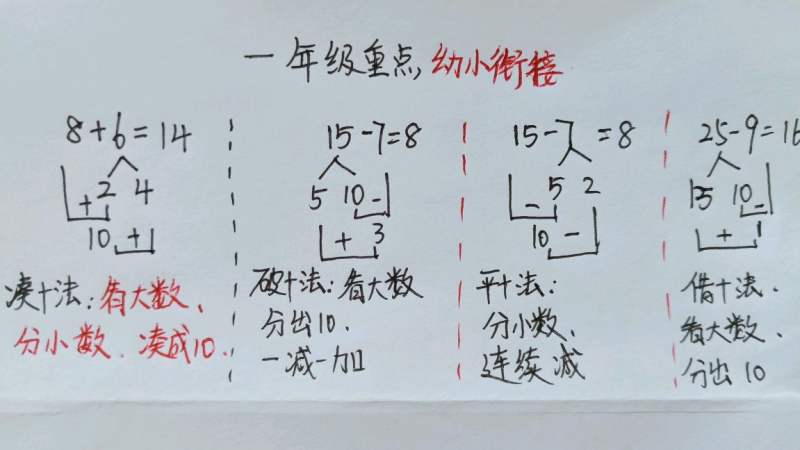 一年级重点 幼小衔接
8+6=14
+ 2 4
10 +
凑十法：看大数、
分小数、凑成10.
15-7=8
5 10 -
+ 3
破十法：看大数
分出10.
一减一加
15-7 =8
- 5 2
10 -
平十法：
分小数、
连续减
25-9=16
15 10 -
+ 1
借十法.
看大数、
分出10